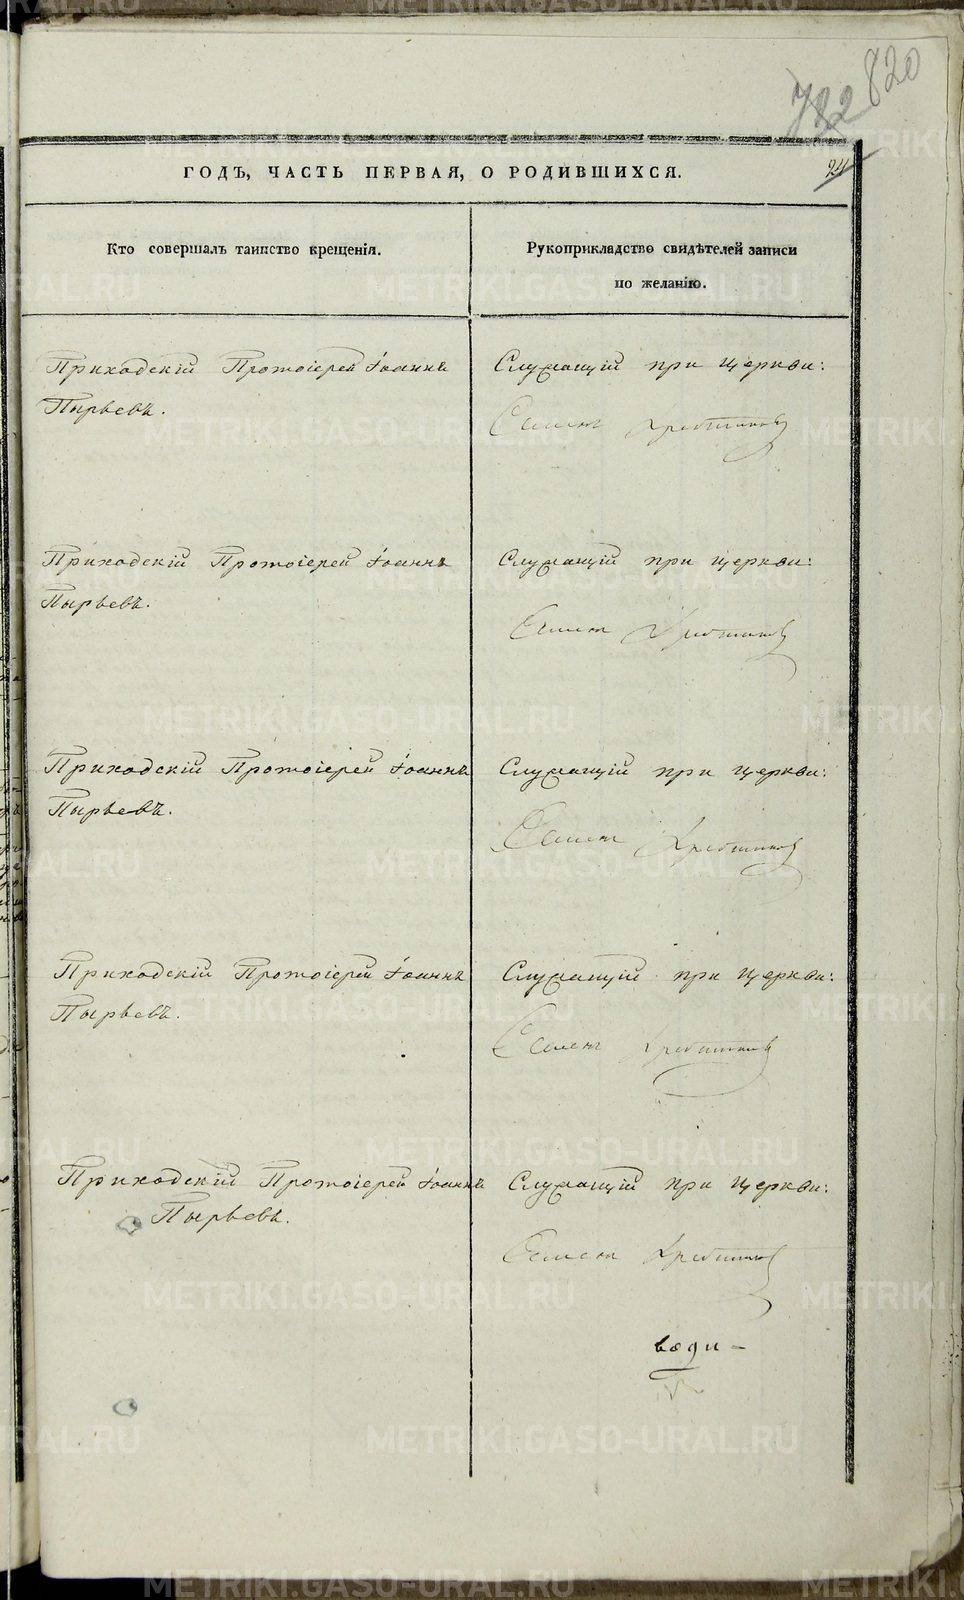 820
782
24
ГОДЪ, ЧАСТЬ ПЕРВАЯ, О РОДИВШИХСЯ.
Кто совершалъ таинство крещенія.
Рукоприкладство свидѣтелей записи
по желанію.
Приходскій Протоіерей Іоаннъ
Пырьевъ.
Служащій при церкви:
Приходскій Протоіерей Іоаннъ
Пырьевъ.
Служащій при церкви:
Приходскій Протоіерей Іоаннъ
Пырьевъ.
Служащій при церкви:
Приходскій Протоіерей Іоаннъ
Пырьевъ.
Служащій при церкви:
Приходскій Протоіерей Іоаннъ
Пырьевъ.
Служащій при церкви:
води-
METRIKI.GASO-URAL.RU